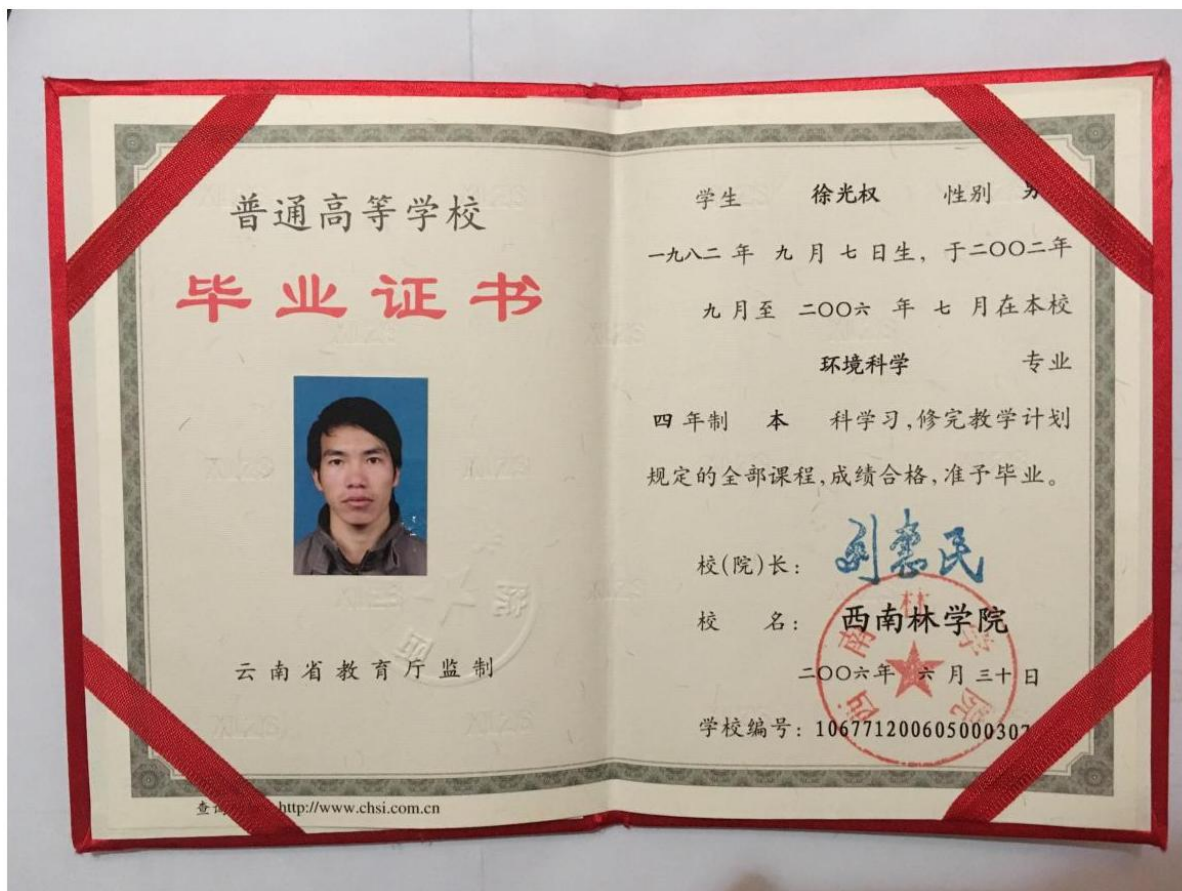 普通高等学校
毕业证书
云南省教育厅监制
http://www.chsi.com.cn
学生 徐光权 性别
一九八二 年 九 月 七 日生, 于二〇〇二年
九 月至 二〇〇六 年 七 月在本校
环境科学 专业
四 年制 本 科学习,修完教学计划
规定的全部课程,成绩合格,准予毕业。
校(院)长: 刘惠民
校 名: 西南林学院
二〇〇六年 六 月 三十 日
学校编号: 10677120060500030
西南林学院